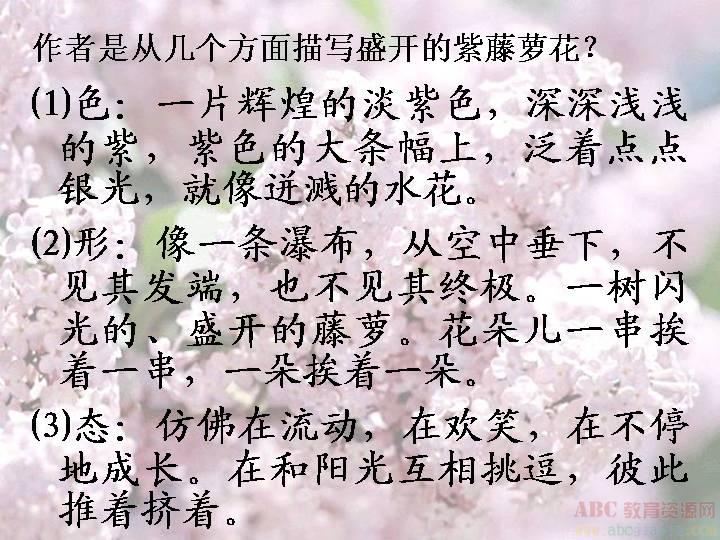 作者是从几个方面描写盛开的紫藤萝花？
(1)色： 一片辉煌的淡紫色，深深浅浅
的紫，紫色的大条幅上，泛着点点
银光，就像迸溅的水花。
(2)形： 像一条瀑布，从空中垂下，不
见其发端，也不见其终极。一树闪
光的、盛开的藤萝。花朵儿一串挨
着一串，一朵挨着一朵。
(3)态： 仿佛在流动，在欢笑，在不停
地成长。在和阳光互相挑逗，彼此
推着挤着。
ABC 教育资源网